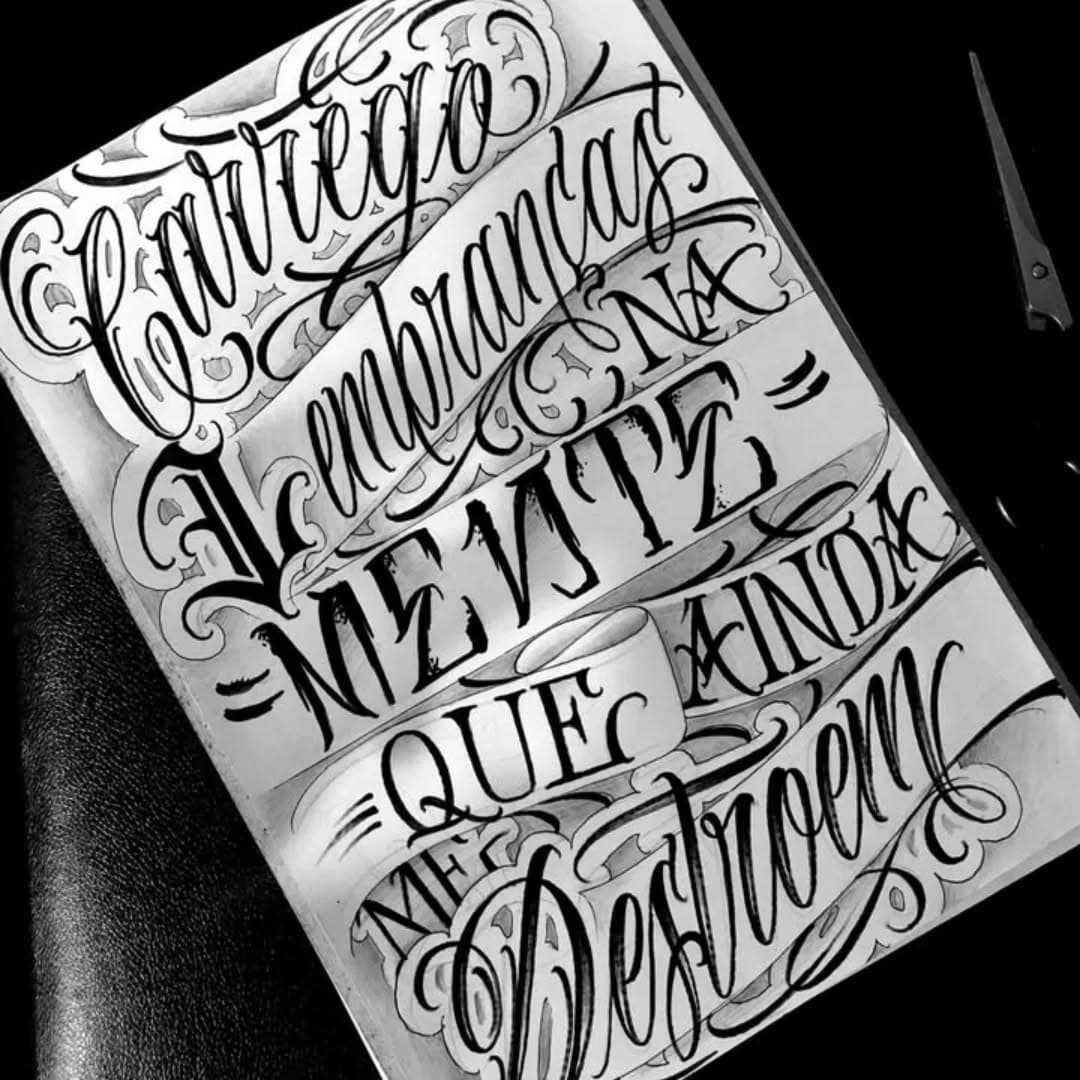 Carrego
Lembranças NA
"MENTE"
QUE AINDA
ME Destroem